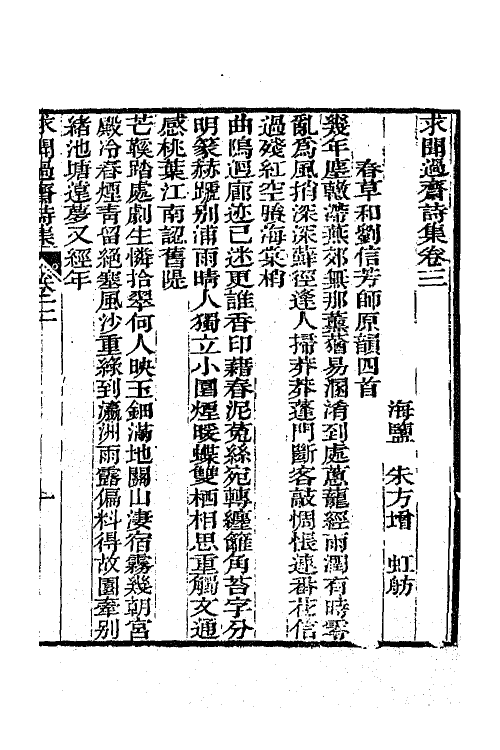 求聞過齋詩集卷三
海鹽 朱方增 虹舫
春草和劉信芳師原韻四首
幾年塵轍滯燕郊無那薰蕕易溷淆到處蔥蘢經雨潤有時零
亂爲風捎深深蘚徑逢人掃莽莽蓬門斷客敲惆悵連番花信
過殘紅空賸海棠梢
曲隝迴廊迹已迷更誰香印藉春泥菟絲宛轉纏籬角苔字分
明篆赫蹏别浦雨晴人獨立小園煙暖蝶雙栖相思重觸文通
感桃葉江南認舊隄
芒鞵踏處劇生憐拾翠何人映玉鈿滿地關山淒宿霧幾朝宮
殿冷春煙靑留絕塞風沙重綠到瀛洲雨露偏料得故園牽别
緒池塘遠夢又經年
求聞過齋詩集
卷三
一